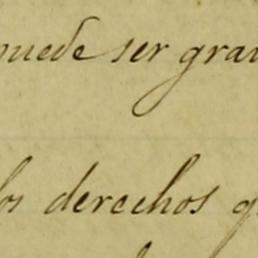 puede ser grav
los derechos q